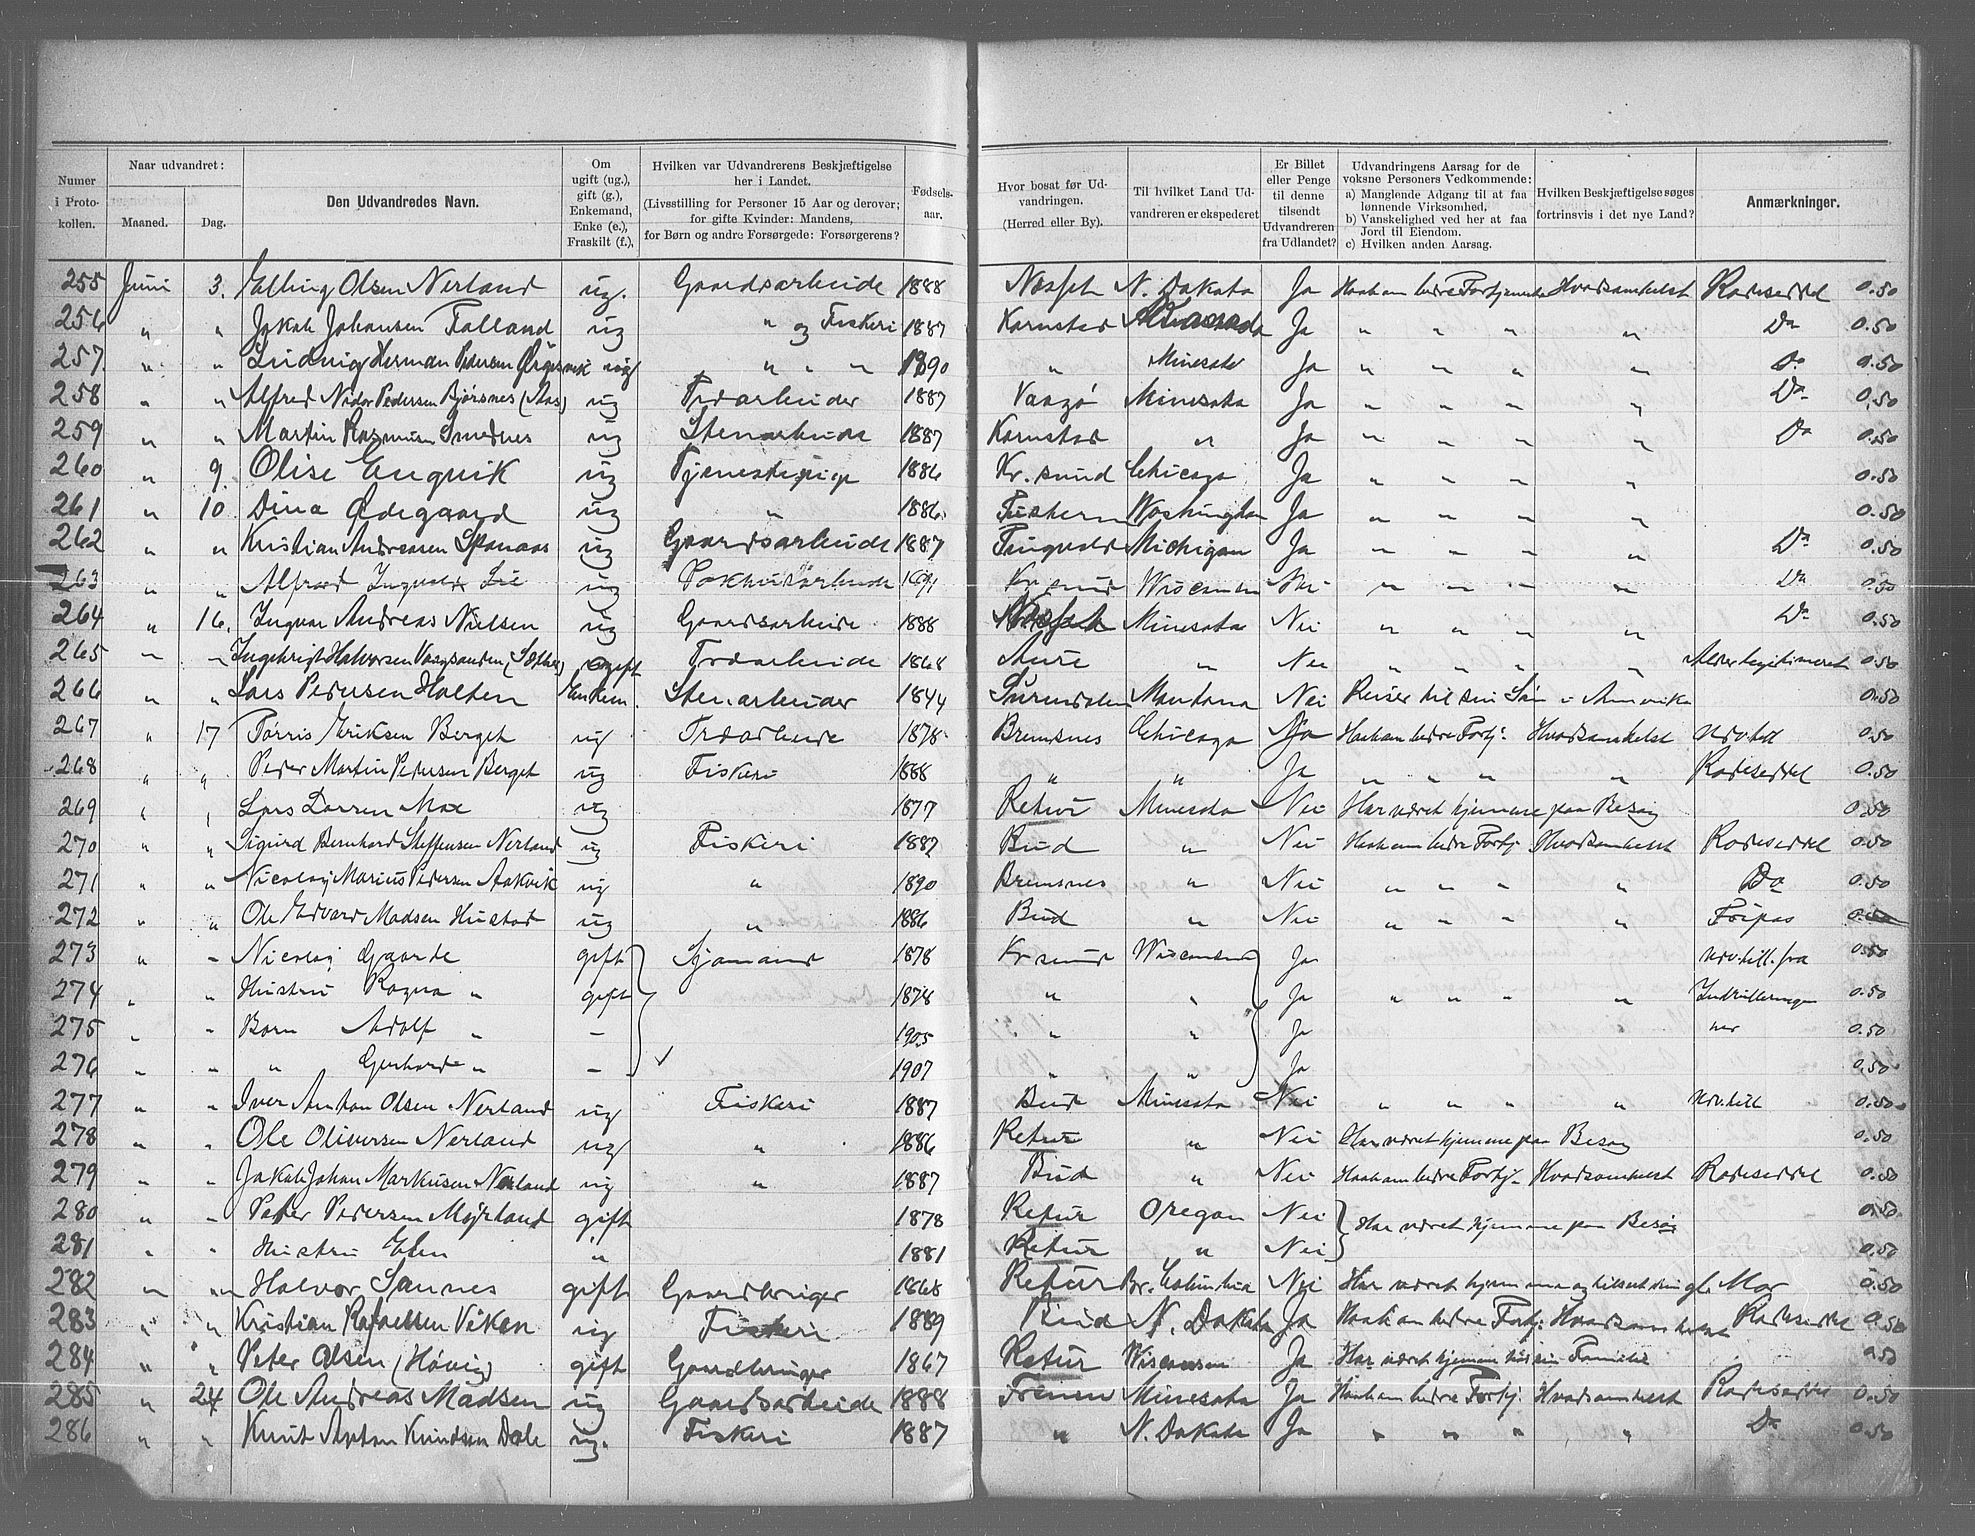 Numer i Proto-kollen. | Naar udvandret: Maaned. Dag. | Den Udvandredes Navn. | Om ugift (ug.), gift (g.), Enkemand, Enke (e.), Fraskilt (f.), | Hvilken var Udvandrerens Beskjæftigelse her i Landet. (Livsstilling for Personer 15 Aar og derover; for gifte Kvinder: Mandens, for Børn og andre Forsørgede: Forsørgerens? | Fødsels-aar. | Hvor bosat før Ud-vandringen. (Herred eller By). | Til hvilket Land Ud-vandreren er ekspederet | Er Billet eller Penge til denne tilsendt Udvandreren fra Udlandet? | Udvandringens Aarsag for de voksne Personers Vedkommende: a) Manglende Adgang til at faa lønnende Virksomhed. b) Vanskelighed ved her at faa Jord til Eiendom. c) Hvilken anden Aarsag. | Hvilken Beskjæftigelse søges fortrinsvis i det nye Land? | Anmærkninger.
255 Juni 3. Elling Olsen Nerland ug. Gaardsarbeide 1888 Nesset N. Dakota Ja Haab om bedre Fortjeneste Hvadsomhelst Rodeseddel 0.50
256 " " Jakob Johansen Folland ug " og Fiskeri 1887 Kornstad Ja " " " " Do 0.50
257 " " Ludvig Herman Pedersen ug " " " 1890 " Minesota Ja " " " " Do 0.50
258 " " Alfred Nidar Pedersen Bjørsnes (Aas) ug Træarbeider 1887 Vaagø Minesota Ja " " " " Do 0.50
259 " " Martin Rasmusen Smednes ug Stenarbeide 1887 Kornstad " Ja " " " " Do 0.50
260 " 9. Olise Engvik ug Tjenestepige 1886 Kr. sund Chicago Ja " " " " 0.50
261 " 10 Dina Ødegaard ug " 1886 Tustern Washington Ja " " " " 0.50
262 " " Kristian Andreasen Spanaas ug Gaardsarbeide 1887 Tingvold Michigan Ja " " " " Do 0.50
263 " " Alfred Ingvald Lie ug Pakhusarbeide Kr sund Wisconsin Nei " " " " Do 0.50
264 " 16. Ingvar Andreas Nielsen ug Gaardsarbeide 1888 Nesset Minesota Nei " " " " Do 0.50
265 " " Ingebrigt Halvorsen Vaagsanden (Sæther) ugift Træarbeide 1868 Aure " Nei " " " " Alderlegitimeret 0.50
266 " " Lars Pedersen Holten Enkem. Stenarbeider 1844 Surendalen Montana Nei Reiser til sin Søn i Amerika 0.50
267 " 17 Torris Eriksen Berget ug Træarbeide 1878 Bremsnes Chicago Ja Haab om bedre Fortj. Hvadsomhelst Udv.till 0.50
268 " " Peder Martin Pedersen Berget ug Fiskeri 1888 " " Ja " " " " Rodeseddel 0.50
269 " " Lars Larsen Moe ug 1877 Retur Minesota Nei Har været hjemme paa Besøg 0.50
270 " " Sigurd Bernhard Steffensen Nerland ug Fiskeri 1882 Bud " Nei Haab om bedre Fortj. Hvadsomhelst Rodeseddel 0.50
271 " " Nicolay Marius Pedersen Aakvik ug " 1890 Bremsnes " Nei " " " " Do 0.50
272 " " Ole Edvard Madsen Hustad ug " 1886 Bud " Nei " " " " Fripas 0.50
273 " " Nicolay Gaarde gift Sjømand 1878 Kr sund Wisconsin Ja Udv.till. fra 0.50
274 " " Hustru Ragna " gift 1878 " " Ja " " " " Indrulleringen 0.50
275 " " Barn Adolf " – 1905 " " Ja 0.50
276 " " " Gerharde " – 1907 " " Ja 0.50
277 " " Iver Anton Olsen Nerland ug Fiskeri 1887 Bud Minesota Nei " " " " Udv.till 0.50
278 " " Ole Oliversen Nerland ug " 1886 Retur " Nei Har været hjemme paa Besøg 0.50
279 " " Jakob Johan Markusen Nerland ug " 1887 Bud " Nei Haab om bedre Fortj. Hvadsomhelst Rodeseddel 0.50
280 " " Peter Pedersen Myrland gift 1878 Retur Oregon Nei Har været hjemme paa Besøg 0.50
281 " " Hustru Elen " 1881 Retur " Nei 0.50
282 " " Halvor Sannes gift Gaardbruger 1868 Retur Br. Columbia Nei Har været hjemme og tilseet sin gl. Mor 0.50
283 " " Kristian Rafaelsen Viken ug Fiskeri 1889 Bud N. Dakota Ja Haab om bedre Fortj. Hvadsomhelst Rodeseddel 0.50
284 " " Peter Olsen (Høvig) gift Gaardbruger 1867 Retur Wisconsin Ja Har været hjemme hos sin Familie 0.50
285 " 24 Ole Andreas Madsen ug Gaardsarbeide 1888 Frænen Minesota Ja Haab om bedre Fortj. Hvadsomhelst Rodeseddel 0.50
286 " " Knut Anton Knudsen Dale ug. Fiskeri 1887 " N. Dakota Ja " " " " Do 0.50